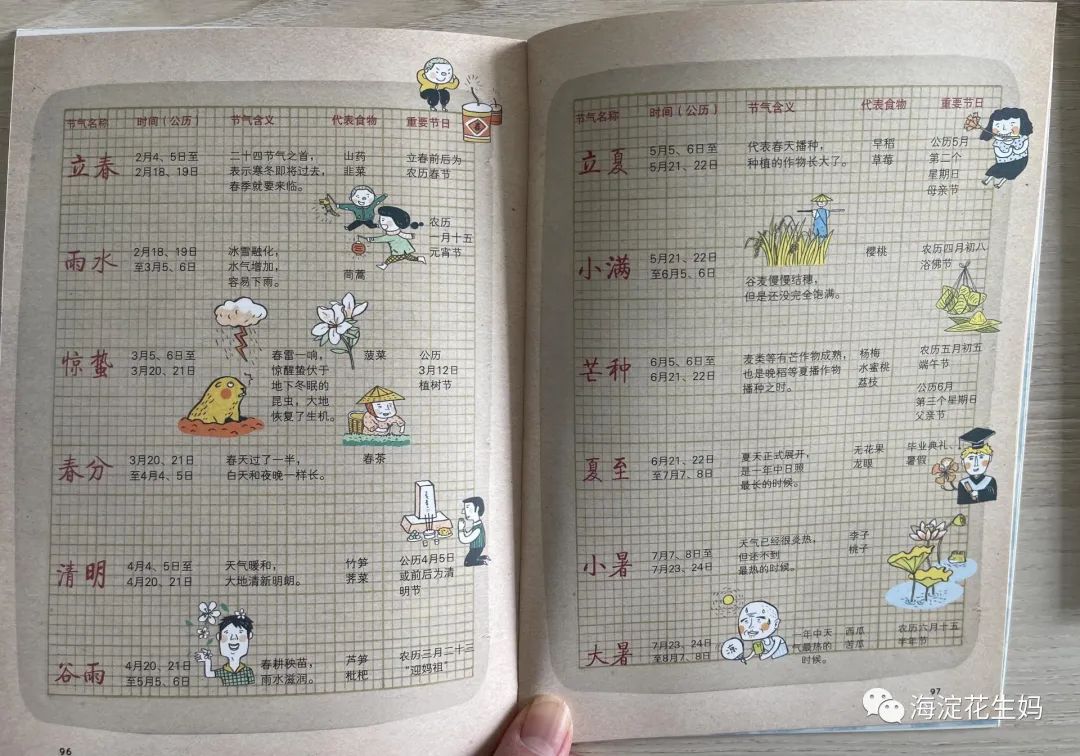 节气名称 时间(公历) 节气含义 代表食物 重要节日
立春 2月4、5日至 二十四节气之首, 山药 立春前后为
2月18、19日 表示寒冬即将过去, 韭菜 农历春节
春季就要来临。
农历
一月十五
元宵节
雨水 2月18、19日 冰雪融化,
至3月5、6日 水气增加,
容易下雨。 茼蒿
惊蛰 3月5、6日至 春雷一响, 菠菜 公历
3月20、21日 惊醒蛰伏于 3月12日
地下冬眠的 植树节
昆虫,大地
恢复了生机。
春分 3月20、21日 春天过了一半, 春茶
至4月4、5日 白天和夜晚一样长。
清明 4月4、5日至 天气暖和, 竹笋 公历4月5日
4月20、21日 大地清新明朗。 荠菜 或前后为清
明节
谷雨 4月20、21日 春耕秧苗, 芦笋 农历三月二十三
至5月5、6日 雨水滋润。 枇杷 “迎妈祖”
96
节气名称 时间(公历) 节气含义 代表食物 重要节日
立夏 5月5、6日至 代表春天播种, 早稻 公历5月
5月21、22日 种植的作物长大了。 草莓 第二个
星期日
母亲节
小满 5月21、22日 樱桃 农历四月初八
至6月5、6日 浴佛节
谷麦慢慢结穗,
但是还没完全饱满。
芒种 6月5、6日至 麦类等有芒作物成熟, 杨梅 农历五月初五
6月21、22日 也是晚稻等夏播作物 水蜜桃 端午节
播种之时。 荔枝
公历6月
第三个星期日
父亲节
夏至 6月21、22日 夏天正式展开, 无花果 毕业典礼、
至7月7、8日 是一年中日照 龙眼 暑假
最长的时候。
小暑 7月7、8日至 天气已经很炎热, 李子
7月23、24日 但还不到 桃子
最热的时候。
大暑 7月23、24日 一年中天 西瓜 农历六月十五
至8月7、8日 气最热的 苦瓜 半年节
时候。
凉
97
海淀花生妈